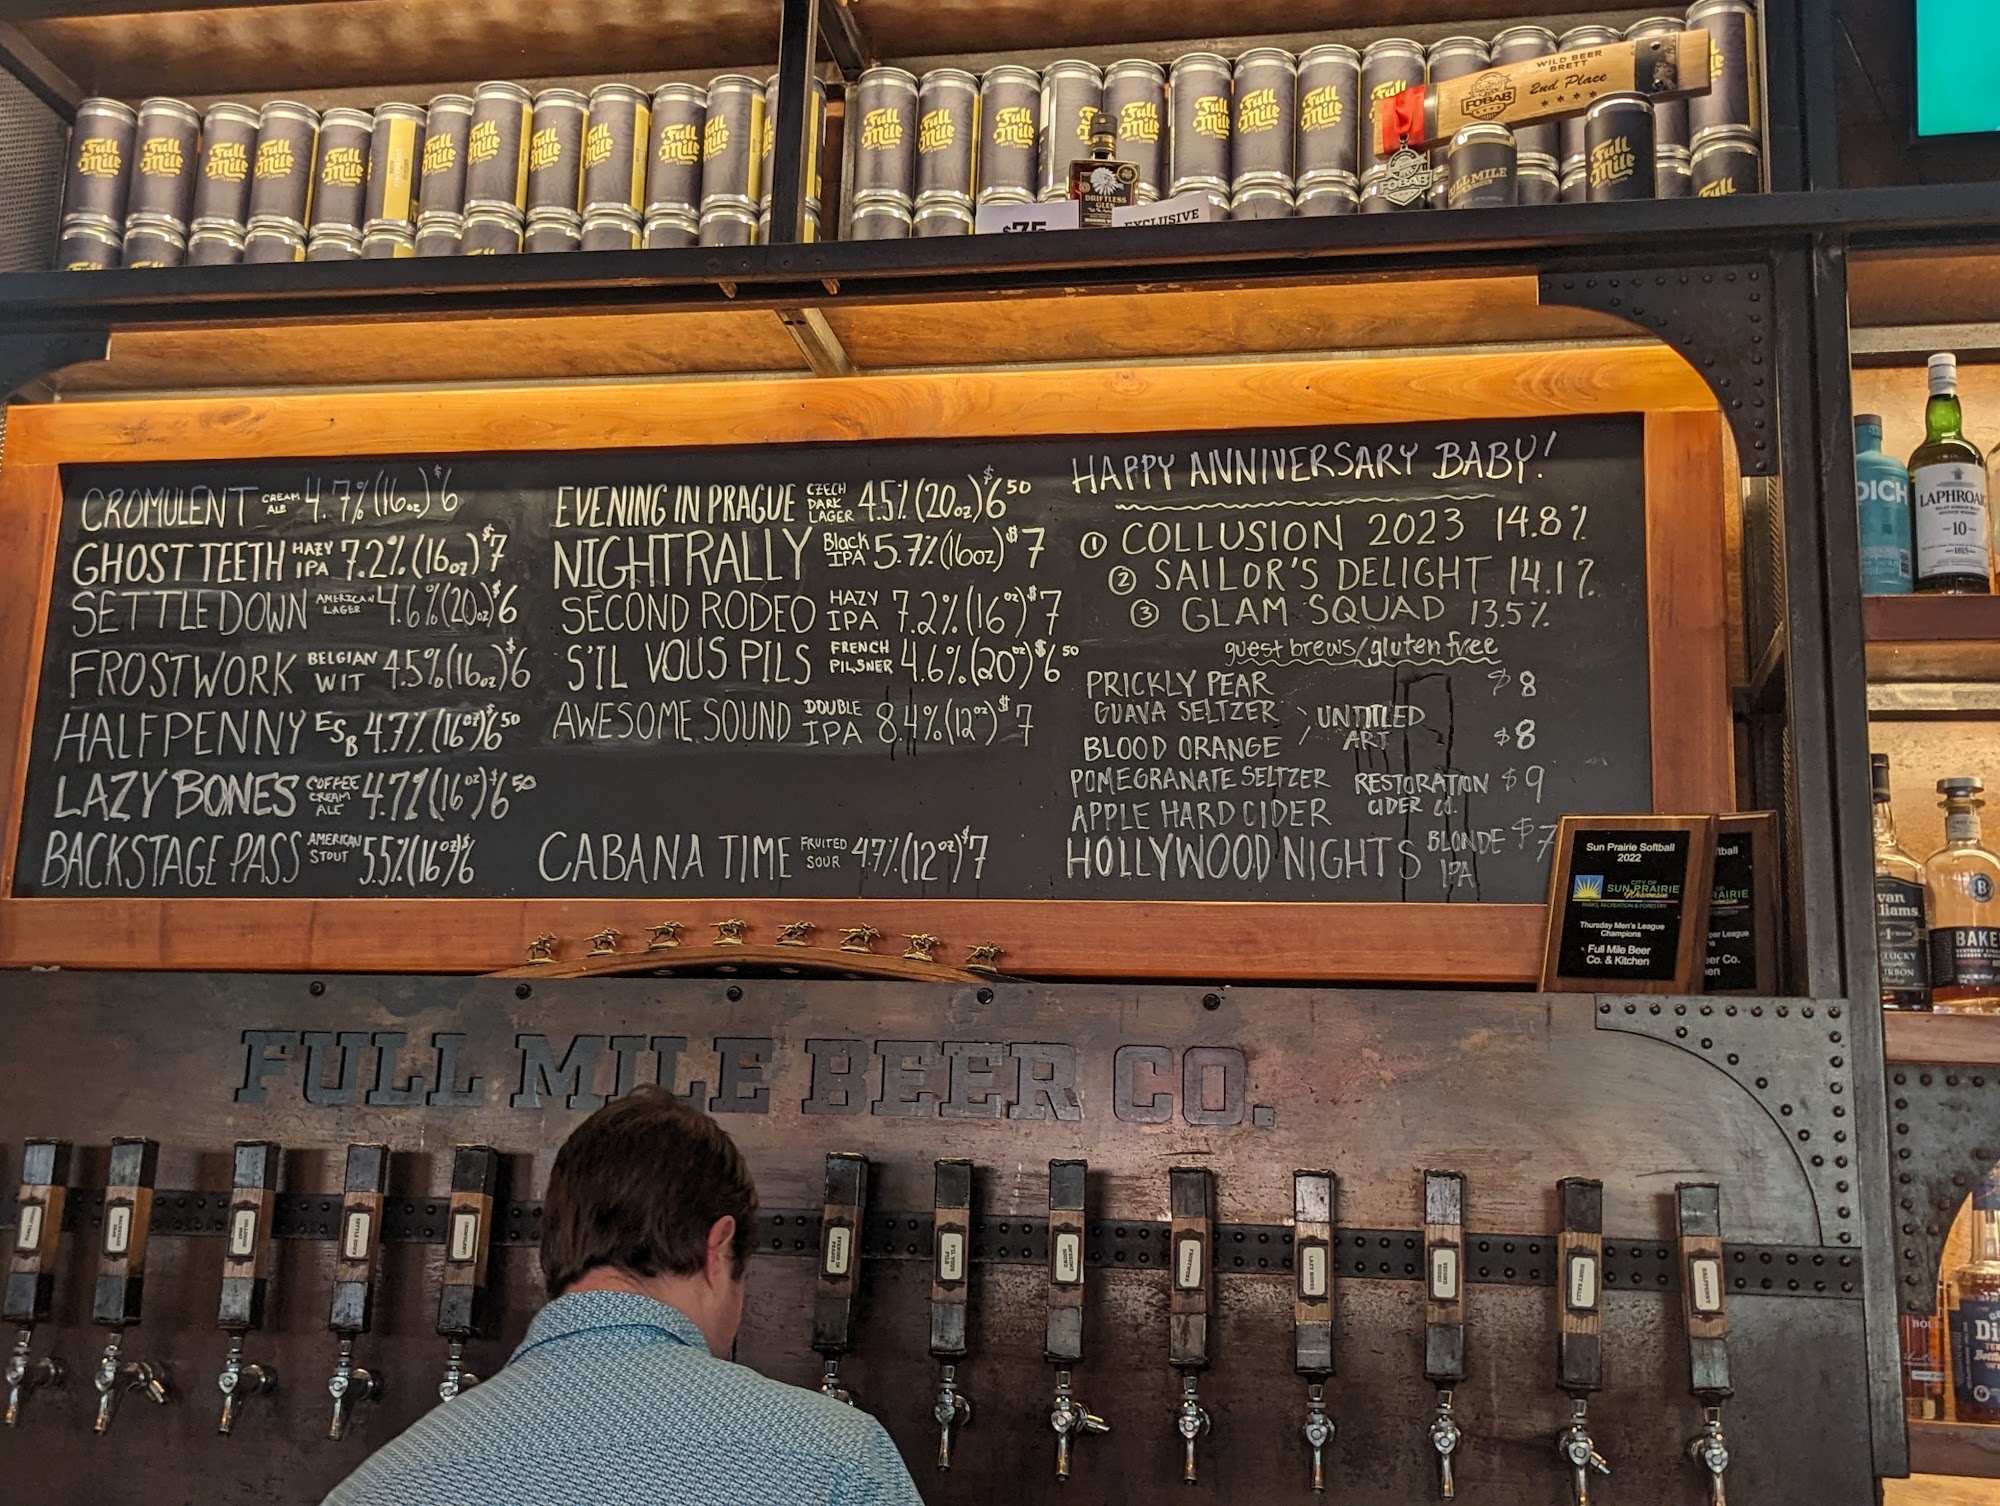 Full Mile
WILD BEER
BRETT
2nd Place
FOBAB
FOBAB
FULL MILE
Full Mile
DRIFTLESS
GLEN
$75
EXCLUSIVE
CROMULENT CREAM ALE 4.7% (16oz) $6
GHOST TEETH HAZY IPA 7.2% (16oz) $7
SETTLE DOWN AMERICAN LAGER 4.6% (20oz) $6
FROSTWORK BELGIAN WIT 4.5% (16oz) $6
HALFPENNY ESB 4.7% (16oz) $6 50
LAZY BONES COFFEE CREAM ALE 4.7% (16oz) $6 50
BACKSTAGE PASS AMERICAN STOUT 5.5% (16oz) $6
EVENING IN PRAGUE CZECH DARK LAGER 4.5% (20oz) $6 50
NIGHTRALLY BLACK IPA 5.7% (16oz) $7
SECOND RODEO HAZY IPA 7.2% (16oz) $7
S'IL VOUS PILS FRENCH PILSNER 4.6% (20oz) $6 50
AWESOME SOUND DOUBLE IPA 8.4% (12oz) $7
CABANA TIME FRUITED SOUR 4.7% (12oz) $7
HAPPY ANNIVERSARY BABY!
① COLLUSION 2023 14.8%
② SAILOR'S DELIGHT 14.1%
③ GLAM SQUAD 13.5%
guest brews/gluten free
PRICKLY PEAR $8
GUAVA SELTZER UNTITLED
BLOOD ORANGE ART $8
POMEGRANATE SELTZER RESTORATION $9
APPLE HARD CIDER CIDER CO.
HOLLYWOOD NIGHTS BLONDE IPA $7
Sun Prairie Softball
2022
CITY OF
SUN PRAIRIE
Wisconsin
PARKS, RECREATION & FORESTRY
Thursday Men's League
Champions
Full Mile Beer
Co. & Kitchen
LAPHROAI
10
1815
FULL MILE BEER CO.
EVENING IN PRAGUE
S'IL VOUS PILS
AWESOME SOUND
FROSTWORK
LAZY BONES
SECOND RODEO
NIGHT RALLY
HALFPENNY
BAKE